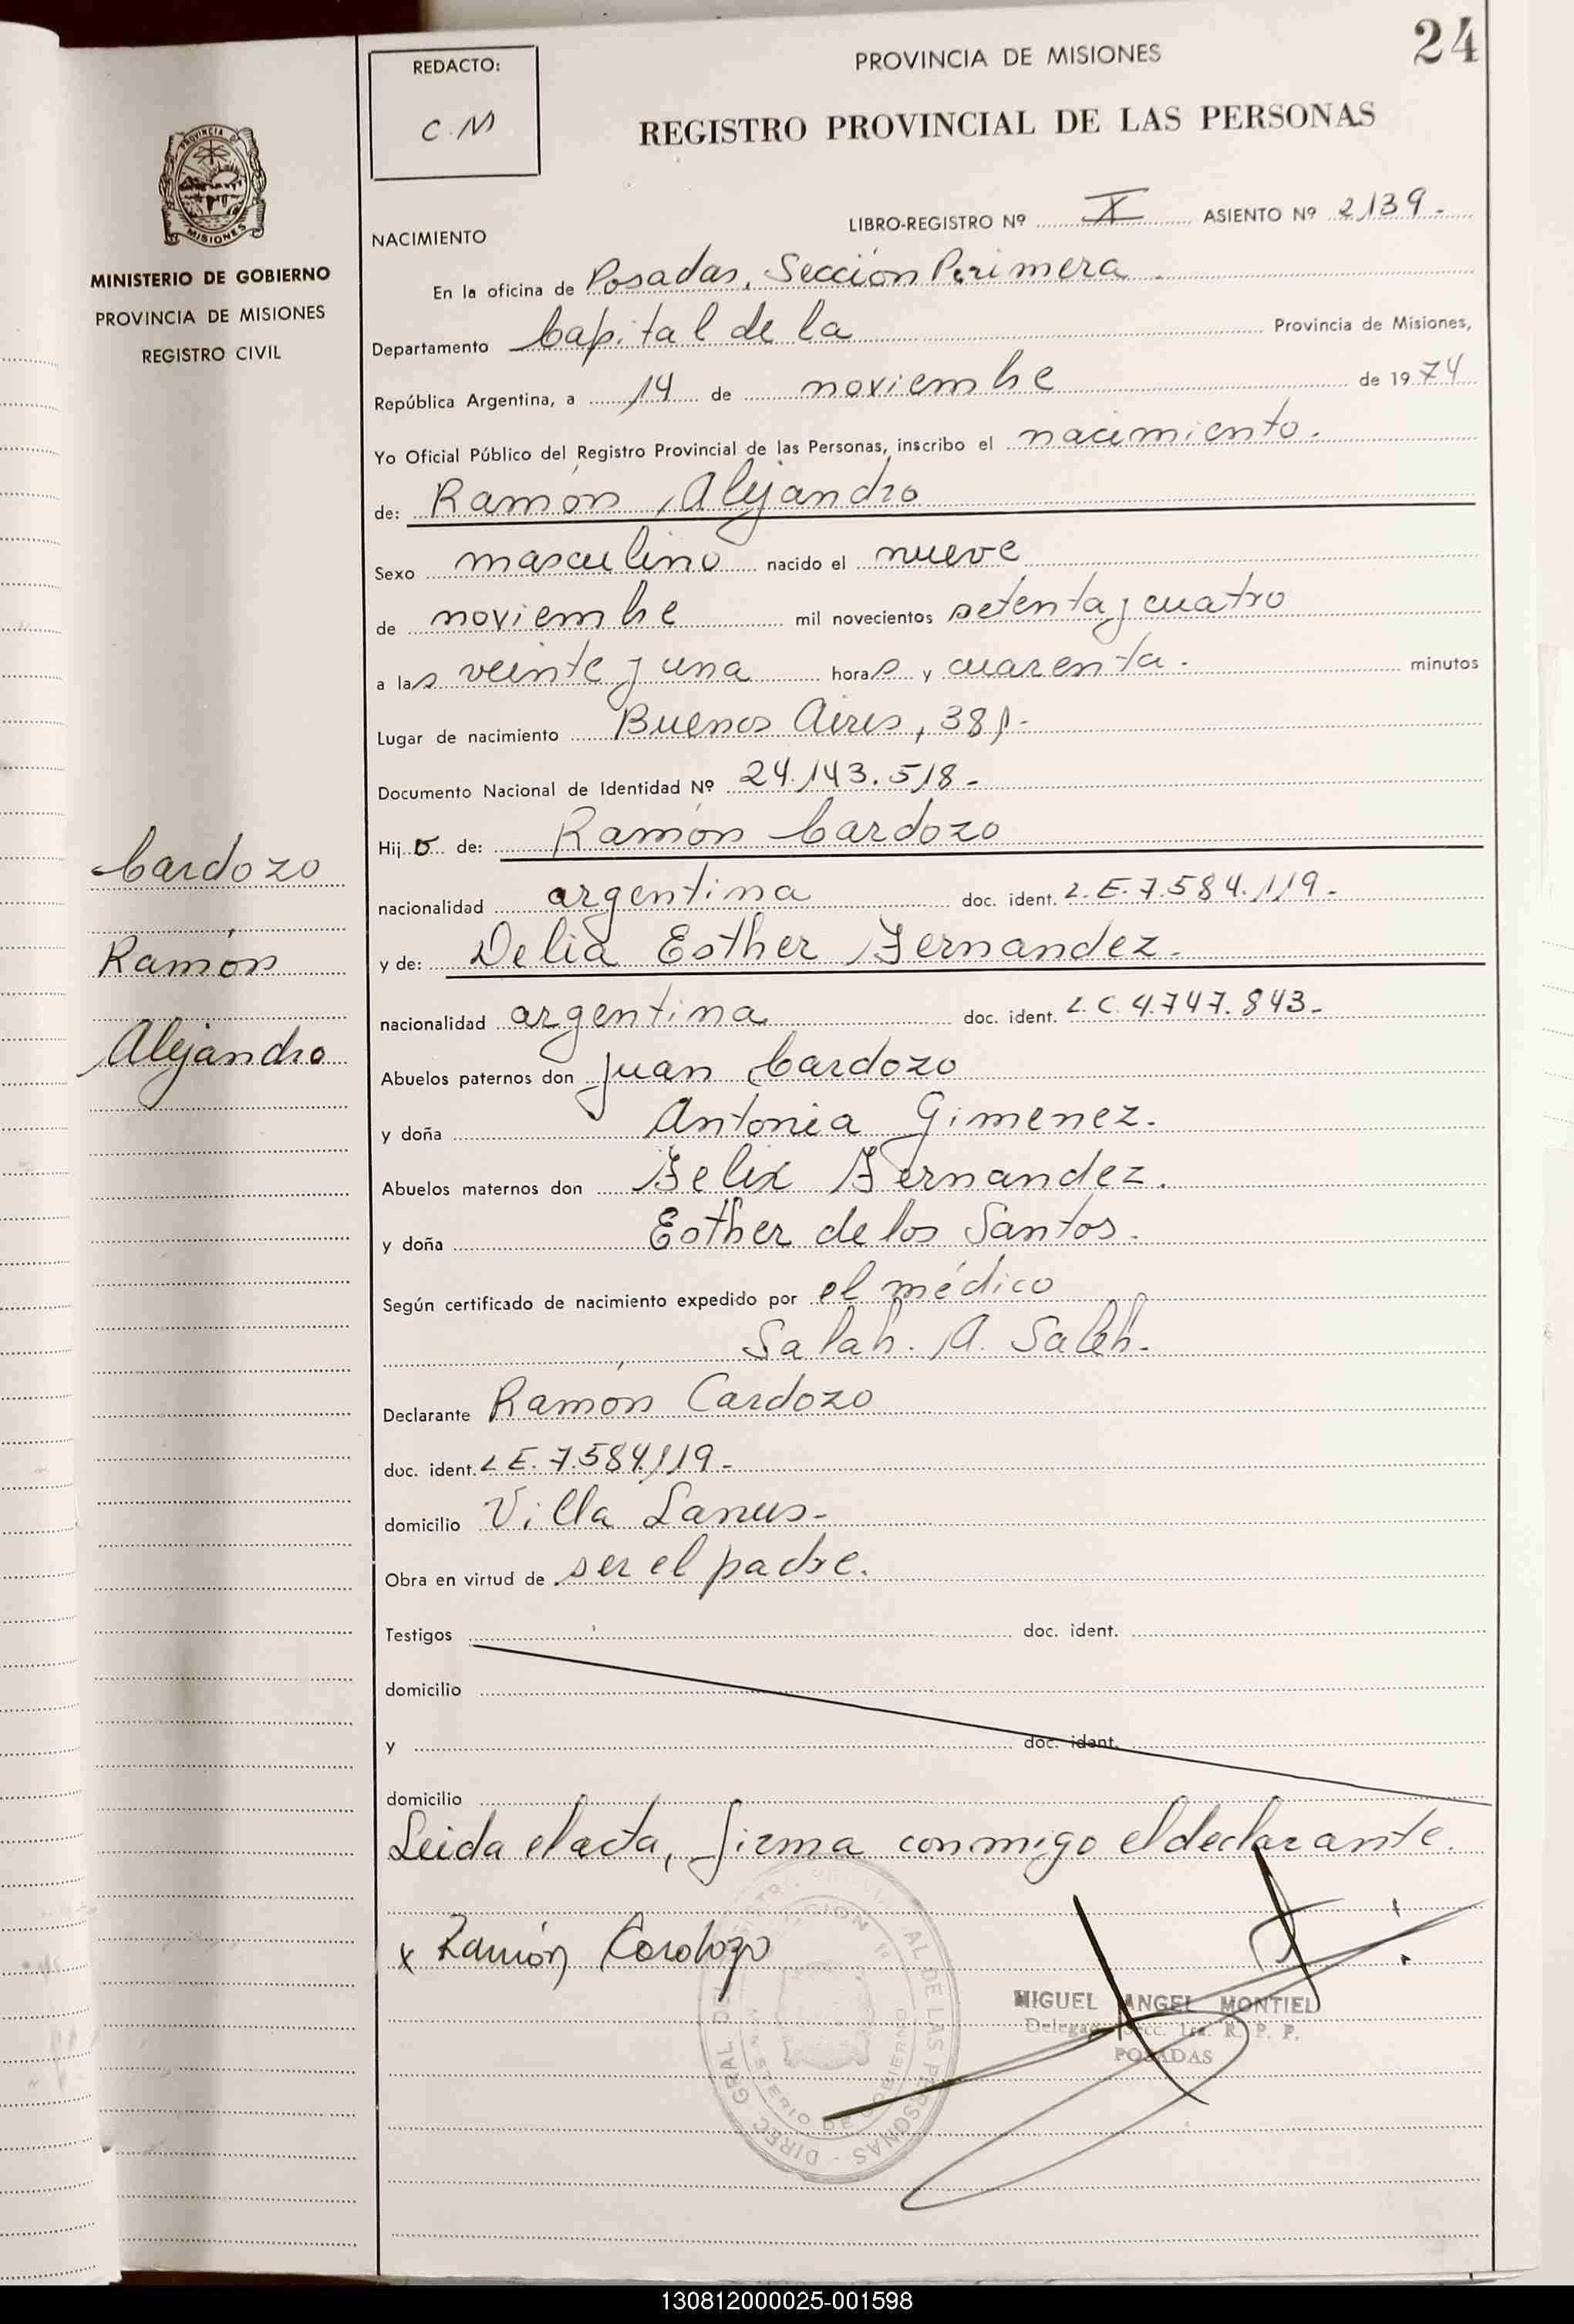 24
REDACTO:
C.M
PROVINCIA DE MISIONES
REGISTRO PROVINCIAL DE LAS PERSONAS
PROVINCIA DE
MISIONES
MINISTERIO DE GOBIERNO
PROVINCIA DE MISIONES
REGISTRO CIVIL
LIBRO-REGISTRO Nº X ASIENTO Nº 2139.-
NACIMIENTO
En la oficina de Posadas, Sección Primera.
Departamento Capital de la Provincia de Misiones,
República Argentina, a 14 de noviembre de 1974
Yo Oficial Público del Registro Provincial de las Personas, inscribo el nacimiento.
de: Ramón Alejandro
Sexo masculino nacido el nueve
de noviembre mil novecientos setenta y cuatro
a las veinte y una horas y cuarenta. minutos
Lugar de nacimiento Buenos Aires, 381.-
Documento Nacional de Identidad Nº 24.143.518.-
Hijo de: Ramón Cardozo
nacionalidad argentina doc. ident. L.E.7.584.119.-
y de: Delia Esther Fernandez.
nacionalidad argentina doc. ident. L.C. 4.747.843.-
Abuelos paternos don Juan Cardozo
y doña Antonia Gimenez.
Abuelos maternos don Felix Fernandez.
y doña Esther de los Santos.
Según certificado de nacimiento expedido por el médico
Salah. A. Saleh.
Declarante Ramón Cardozo
doc. ident. L E. 7.584.119.-
domicilio Villa Lanus-
Obra en virtud de ser el padre.
Testigos doc. ident.
domicilio
y doc. ident.
domicilio
Leida el acta, firma conmigo el declarante.
Cardozo
Ramón
Alejandro
x Ramón Cardozo
MIGUEL ANGEL MONTIEL
Delegado Secc. 1ra. R. P. P.
POSADAS
DIREC. GRAL. DE REGISTRO PROVINCIAL DE LAS PERSONAS
SECCION 1ª
MINISTERIO DE GOBIERNO
130812000025-001598